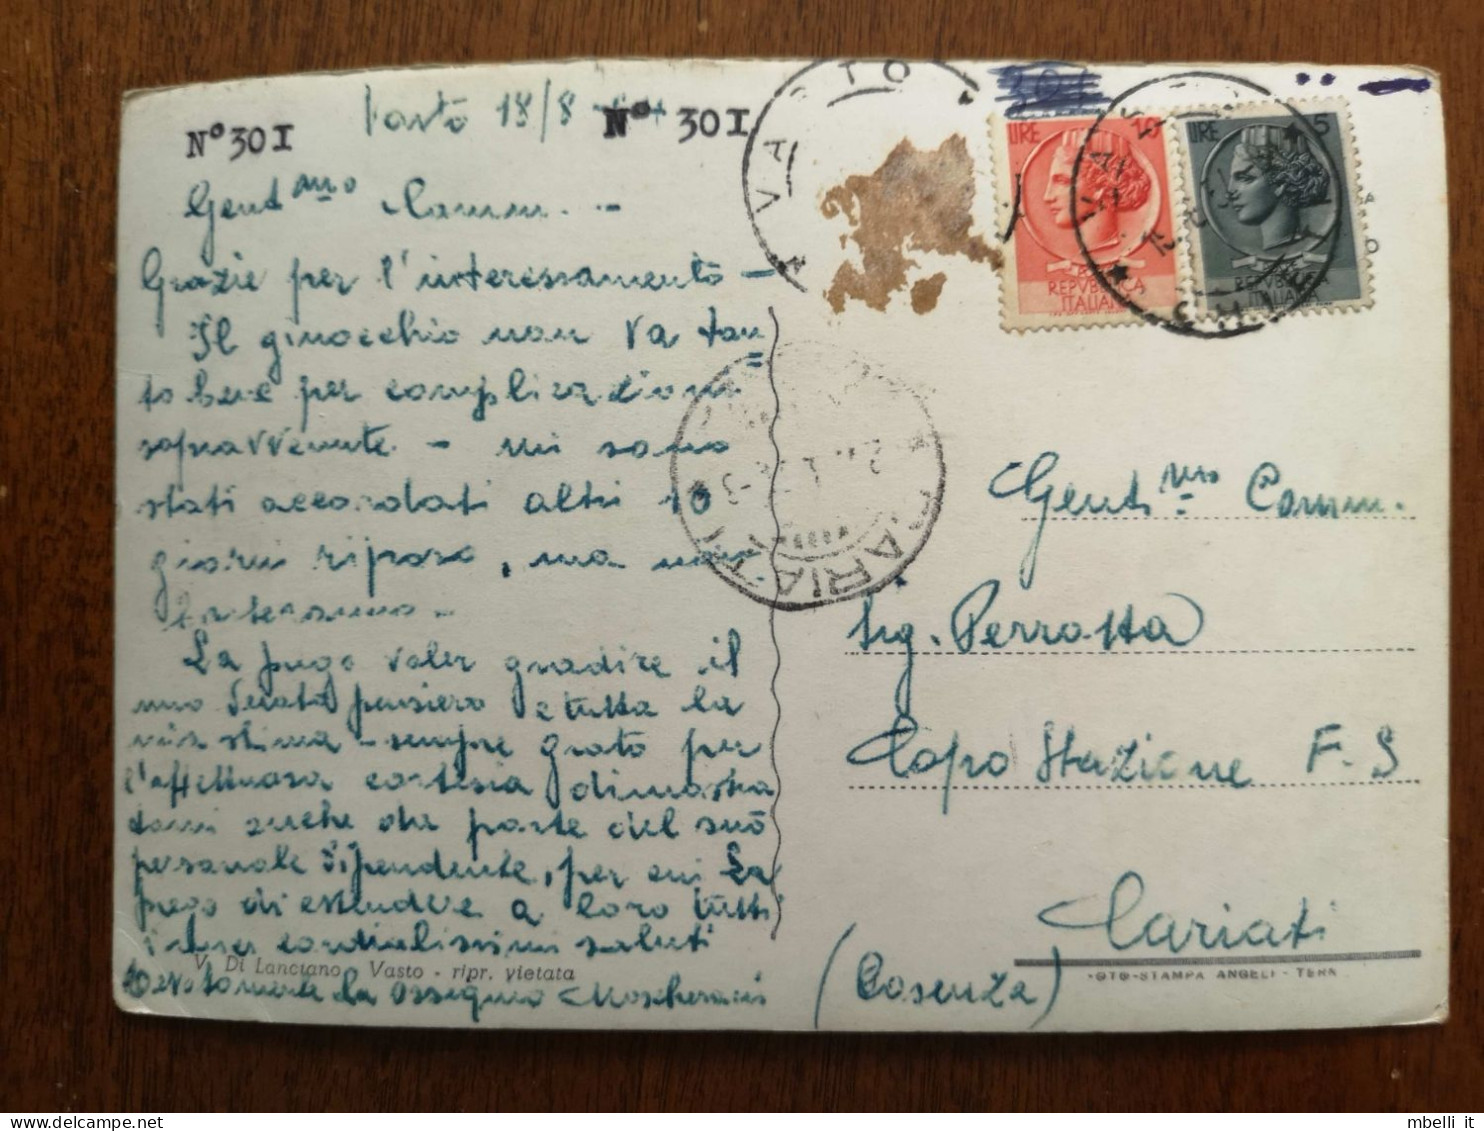 Nº 30I
Vasto 18/8
Nº 30I
Gent.mo Comm. -
Grazie per l'interessamento -
Il ginocchio non va tan
to bene per complicazioni
sopravvenute - mi sono
stati accordati altri 10
giorni riposo, ma non
La prego voler gradire il
mio devoto pensiero e tutta la
mia stima - sempre grato per
l'affettuosa cortesia dimostra
tami anche da parte del suo
personale dipendente, per cui La
prego di estendere a loro tutti
i miei cordialissimi saluti
V. Di Lanciano, Vasto - ripr. vietata
Devotamente La ossequio
VASTO
LIRE 10
REPVBBLICA
ITALIANA
LIRE 5
REPVBBLICA
ITALIANA
VASTO
CHIETI
CARIATI
Gent.mo Comm.
Sig. Perrotta
Capo Stazione F.S
Cariati
(Cosenza)
FOTO-STAMPA ANGELI - TERNI
mbelli it